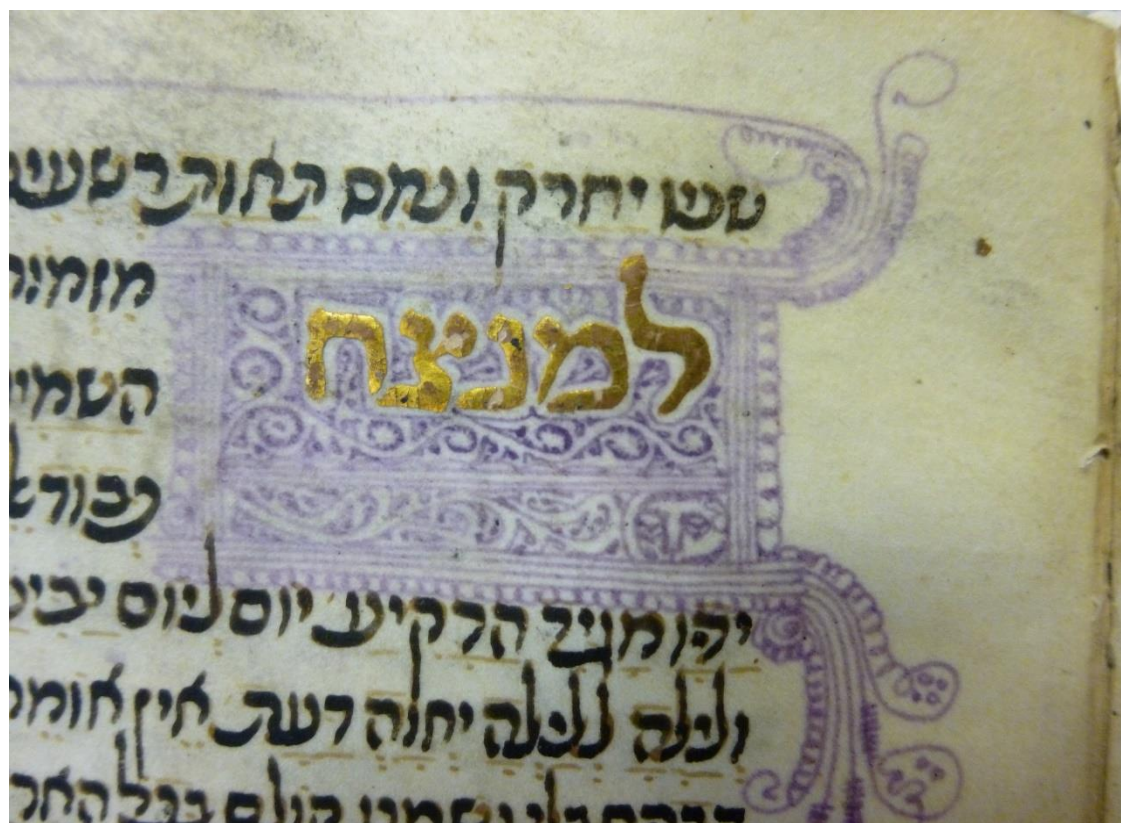 יחרק ונמס תאות רשעי
למנצח
מזמור
השמי
כבוד א
ידיו מגיד הרקיע יום ליום יביע
ולילה ללילה יחוה דעת אין אומר
דברים בלי נשמע קולם בכל האר